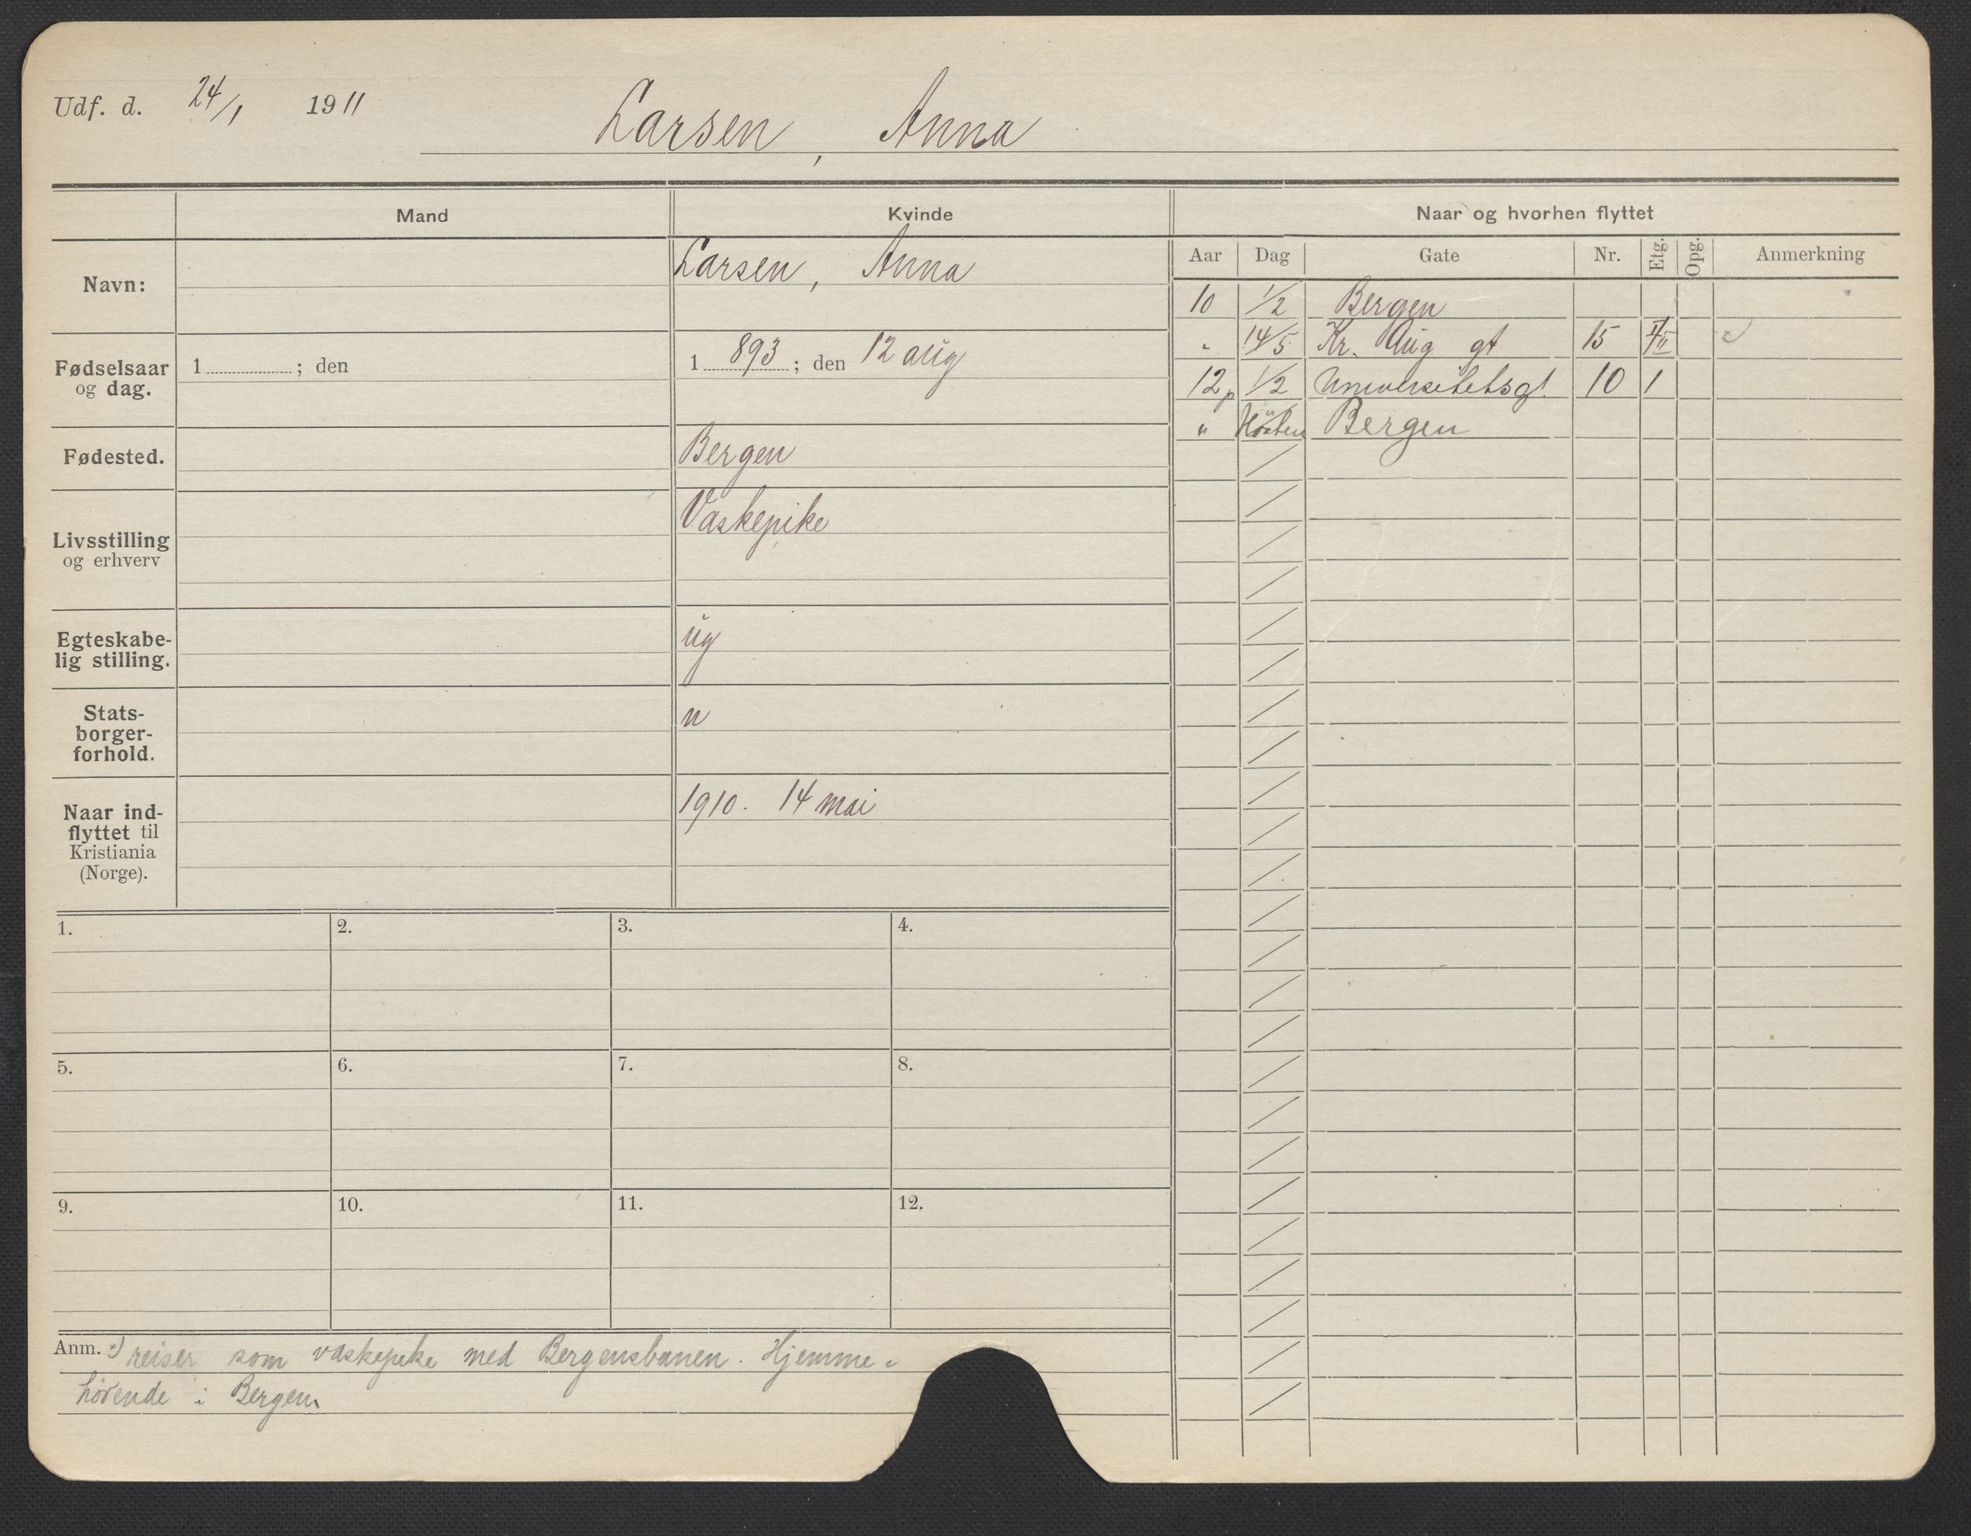 Udf. d. 24/1 1911
Larsen, Anna
Mand
Kvinde
Naar og hvorhen flyttet
Navn:
Larsen, Anna
Fødselsaar og dag.
1 ; den
1 893 ; den 12 aug
Fødested.
Bergen
Livsstilling og erhverv
Vaskepike
Egteskabe-
lig stilling.
ug
Stats-
borger-
forhold.
n
Naar ind-
flyttet til
Kristiania
(Norge).
1910. 14 mai
Aar Dag Gate Nr. Etg. Opg. Anmerkning
10 1/2 Bergen
" 14/5 Kr. Aug gt 15
12 p 1/2 Universitetsgt. 10 1
" Høsten Bergen
1. 2. 3. 4.
5. 6. 7. 8.
9. 10. 11. 12.
Anm. reiser som vaskepike med Bergensbanen. Hjemme-
hørende i Bergen.